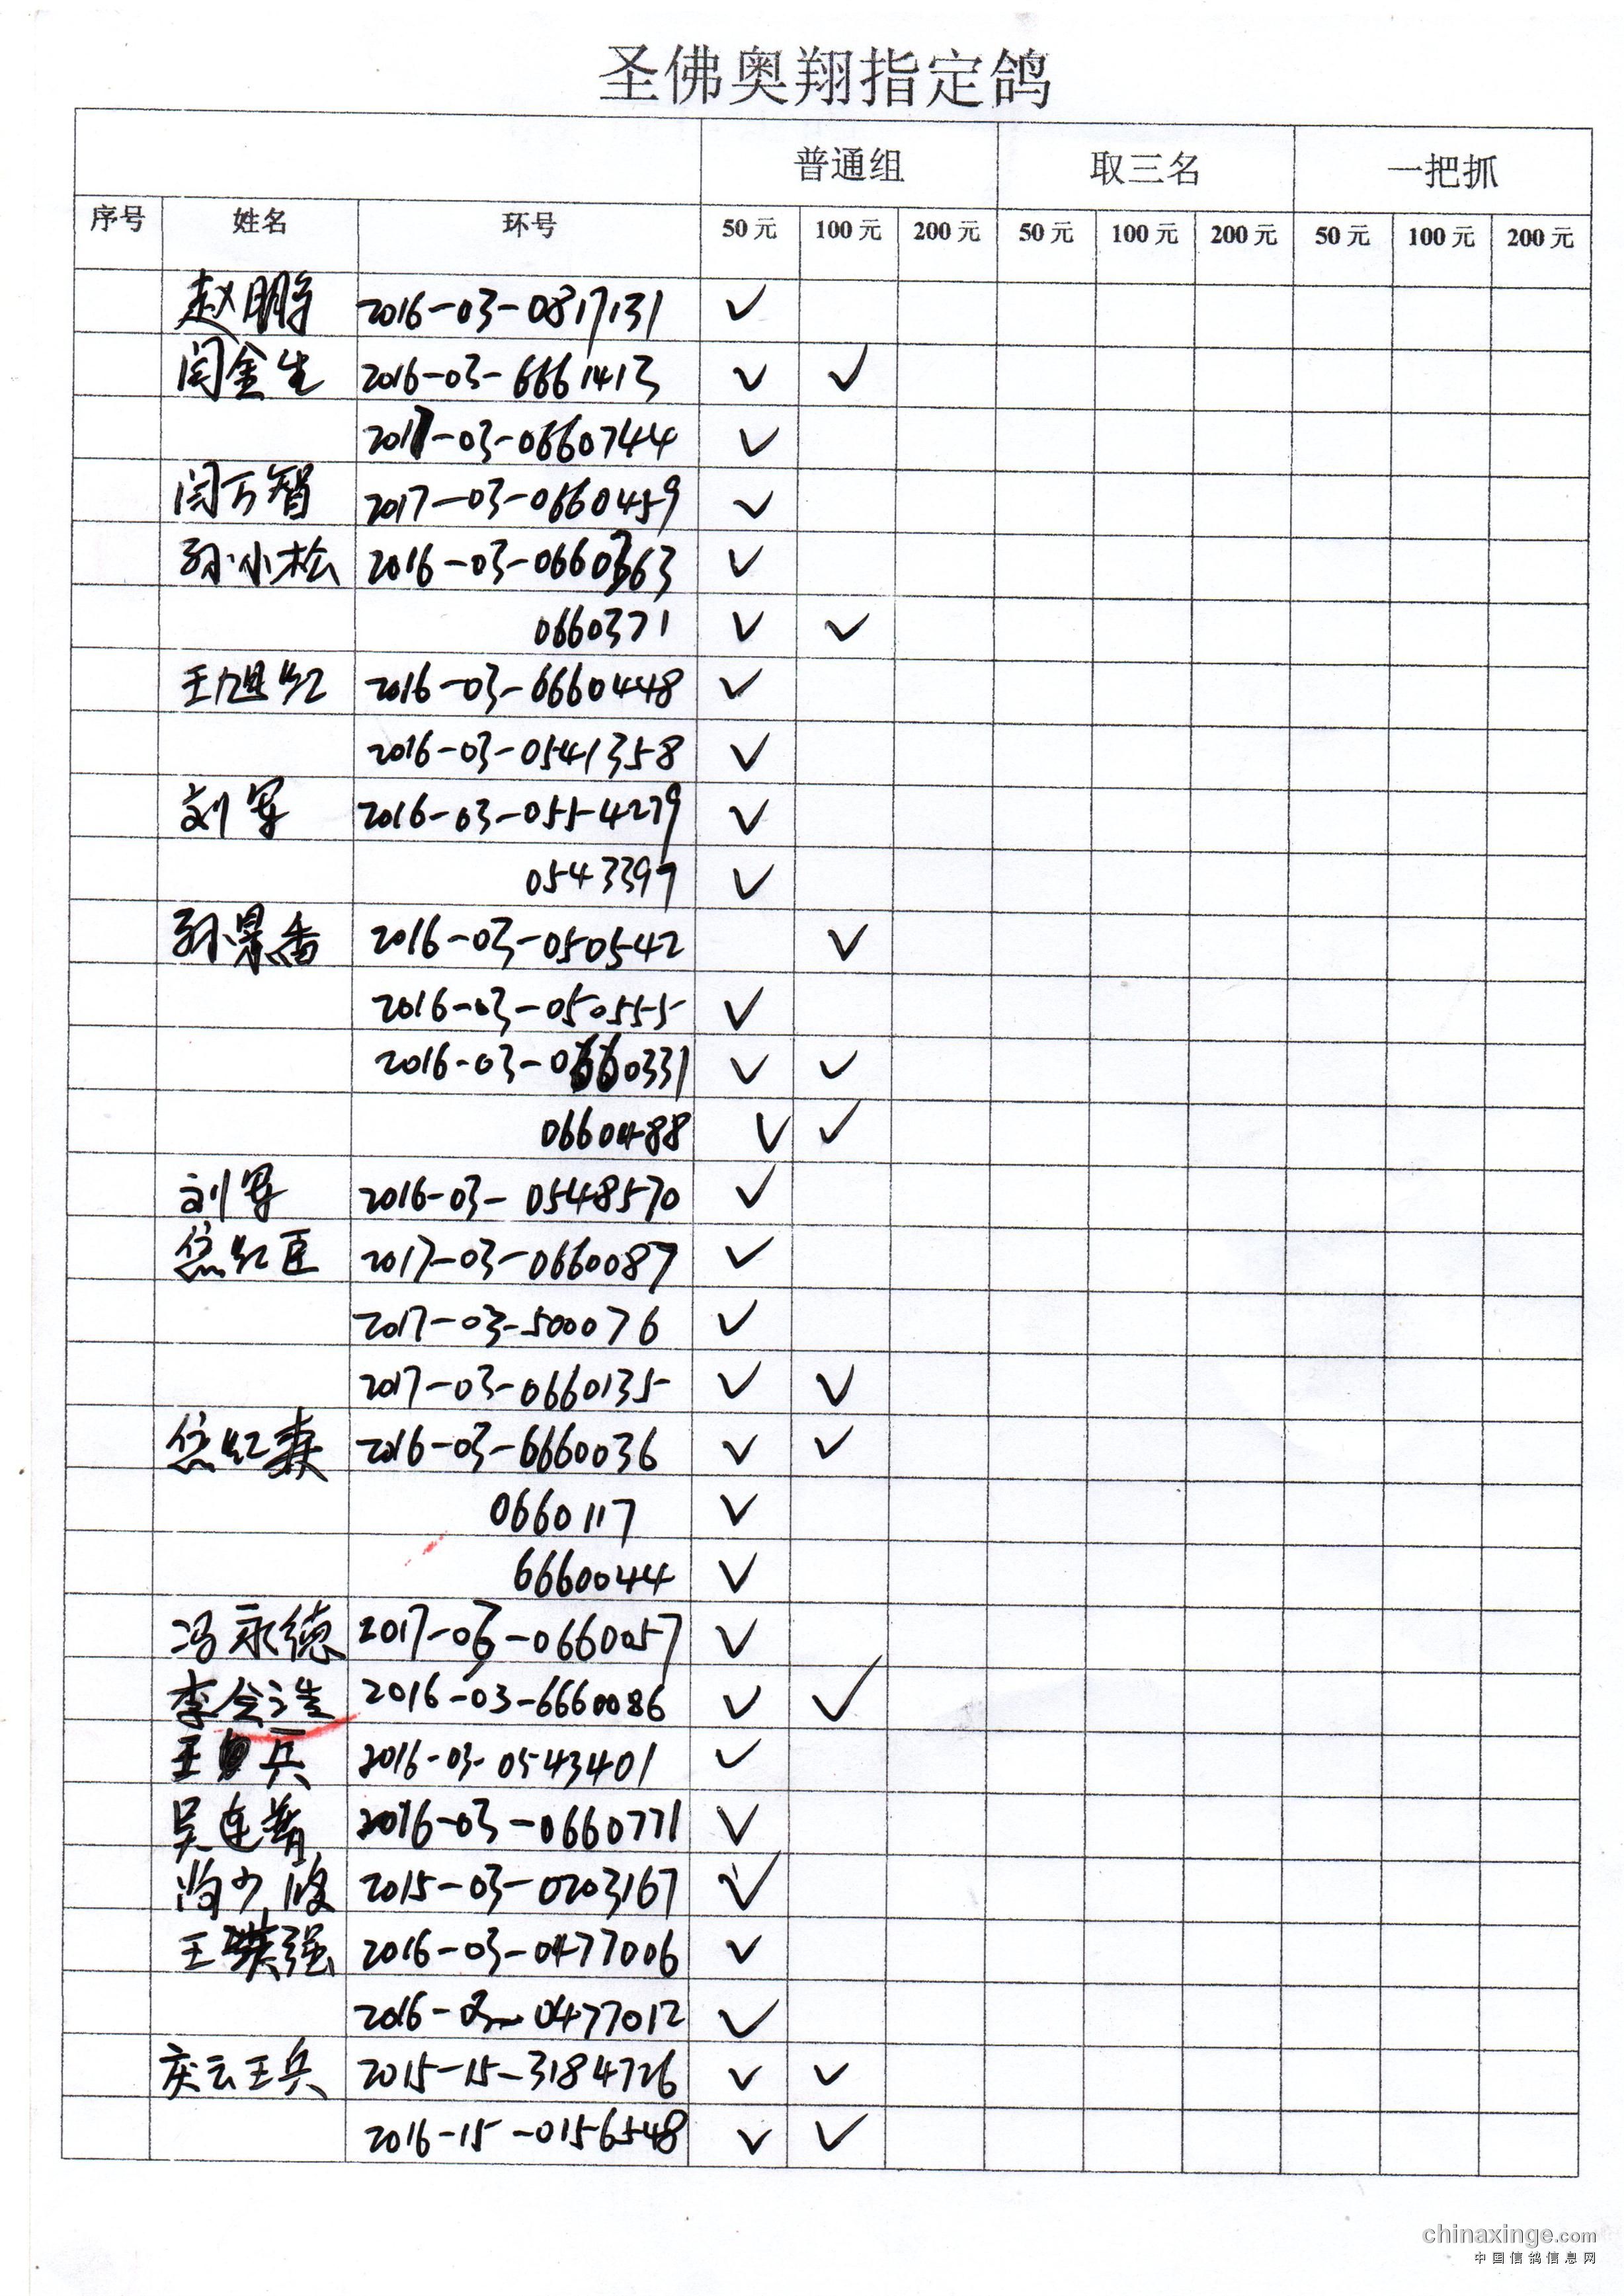 圣佛奥翔指定鸽
普通组 取三名 一把抓
序号 姓名 环号 50元 100元 200元 50元 100元 200元 50元 100元 200元
赵鹏 2016-03-0817131 ✓
闫金生 2016-03-6661413 ✓ ✓
2017-03-0660744 ✓
闫万智 2017-03-0660459 ✓
孙小松 2016-03-0660363 ✓
0660371 ✓ ✓
王旭红 2016-03-6660448 ✓
2016-03-0541358 ✓
刘军 2016-03-0554279 ✓
0543397 ✓
孙景香 2016-03-050542 ✓
2016-03-050555 ✓
2016-03-0660331 ✓ ✓
0660488 ✓ ✓
刘军 2016-03-0548570 ✓
焦红臣 2017-03-0660087 ✓
2017-03-500076 ✓
2017-03-0660135 ✓ ✓
焦红森 2016-03-6660036 ✓ ✓
0660117 ✓
6660044 ✓
冯永德 2017-03-0660057 ✓
李会造 2016-03-6660086 ✓ ✓
王兵 2016-03-0543401 ✓
吴连普 2016-03-0660771 ✓
尚少波 2015-03-0203167 ✓
王强 2016-03-0477006 ✓
2016-03-0477012 ✓
庆云王兵 2015-15-3184726 ✓ ✓
2016-15-0156548 ✓ ✓
chinaxinge.com
中国信鸽信息网